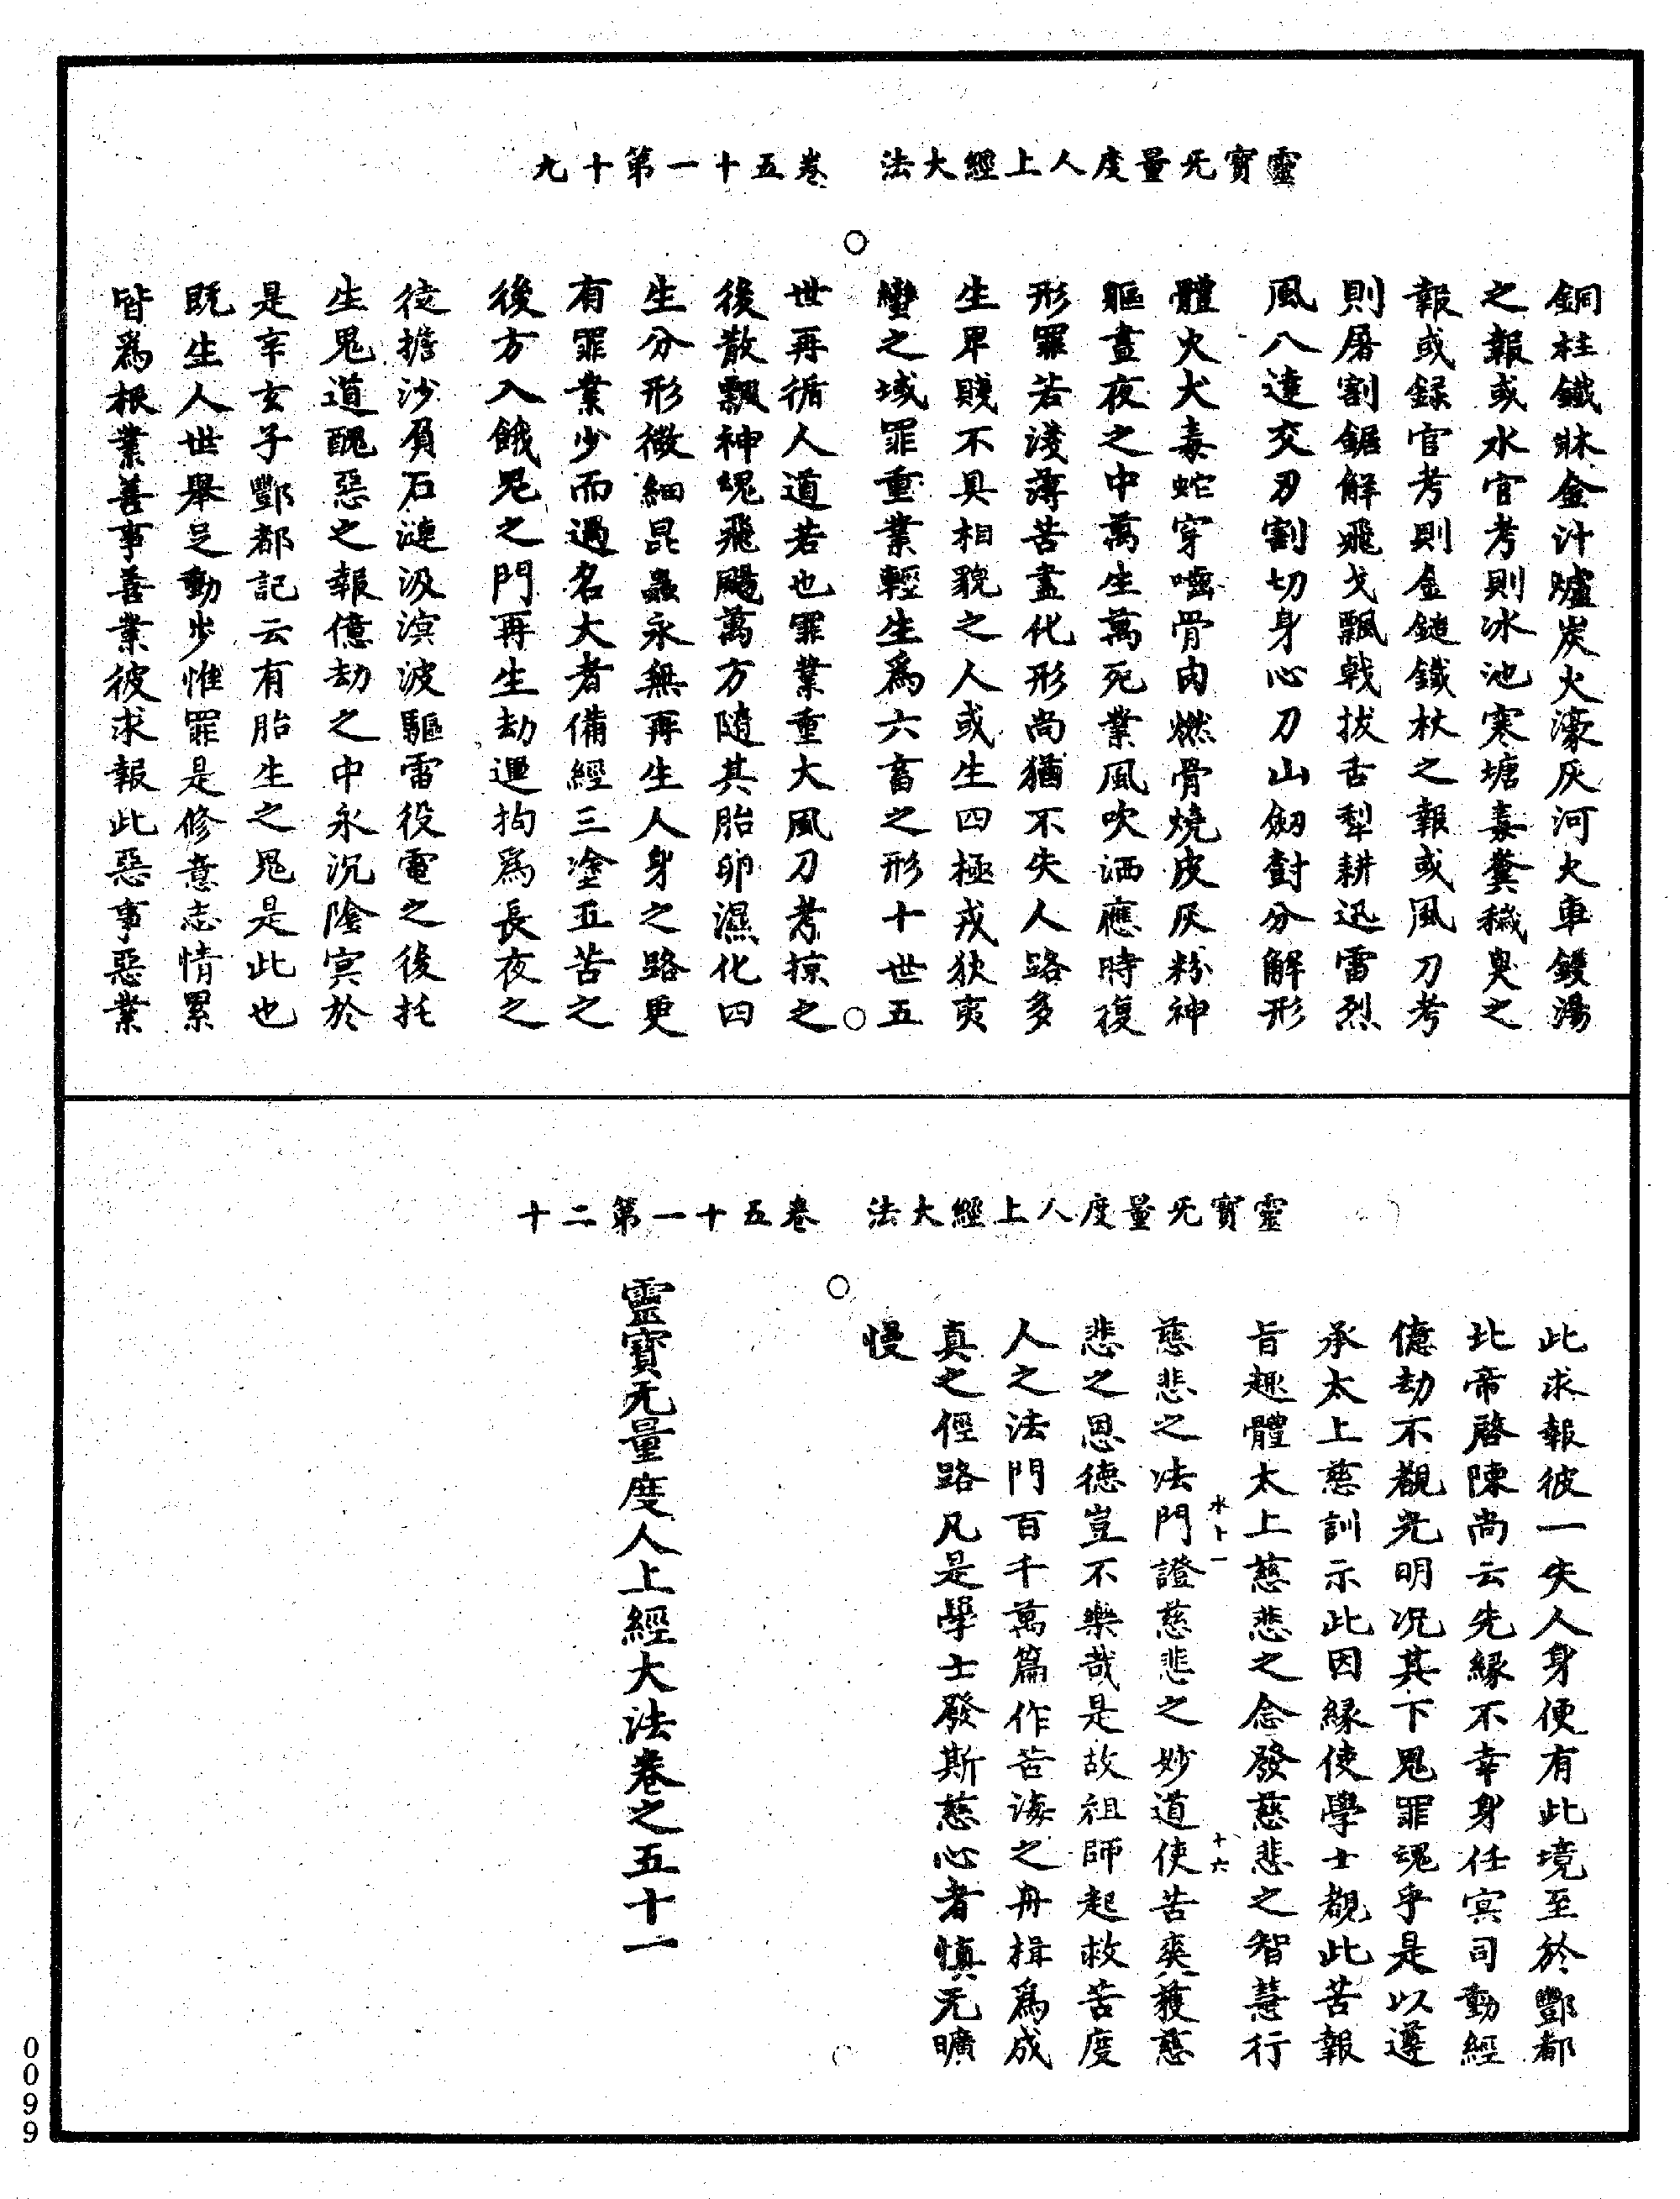 靈寳无量度人上經大法　卷五十一第十九
銅柱鐵牀金汁爐炭火濠灰河火車鑊湯
之報或水官考則冰池寒塘毒糞穢臭之
報或録官考則金鎚鐵杖之報或風刀考
則屠割鋸解飛戈飄戟拔舌犁耕迅雷烈
風八達交刃割切身心刀山劒𣗳分解形
體火犬毒蛇穿嚙骨肉燃骨燒皮灰粉神
軀晝夜之中萬生萬死業風吹洒應時復
形罪若淺薄苦盡化形尚猶不失人路多
生卑賤不具相貌之人或生四極戎狄夷
蠻之域罪重業輕生爲六畜之形十世五
世再循人道若也罪業重大風刀考掠之
後散飄神魂飛颺萬方隨其胎卵濕化四
生分形微細昆蟲永無再生人身之路更
有罪業少而過名大者備經三塗五苦之
後方入餓鬼之門再生劫運拘爲長夜之
徒擔沙負石漣汲溟波驅雷役電之後托
生鬼道醜惡之報億劫之中永沉陰㝠於
是辛玄子酆都記云有胎生之鬼是此也
既生人世舉足動步惟罪是修意志情累
皆爲根業善事善業彼求報此惡事惡業
靈寳无量度人上經大法　卷五十一第二十
此求報彼一失人身便有此境至於酆都
北帝啓陳尚云先縁不幸身任㝠司動經
億劫不覩光明况其下鬼罪魂乎是以遵
承太上慈訓示此因縁使學士覩此苦報
旨趣體太上慈悲之念發慈悲之智慧行
水卜一
十六
慈悲之法門證慈悲之妙道使苦爽獲慈
悲之恩德豈不樂哉是故祖師起救苦度
人之法門百千萬篇作苦海之舟楫爲成
真之徑路凡是學士發斯慈心者慎无曠
慢
靈寳无量度人上經大法卷之五十一
0099